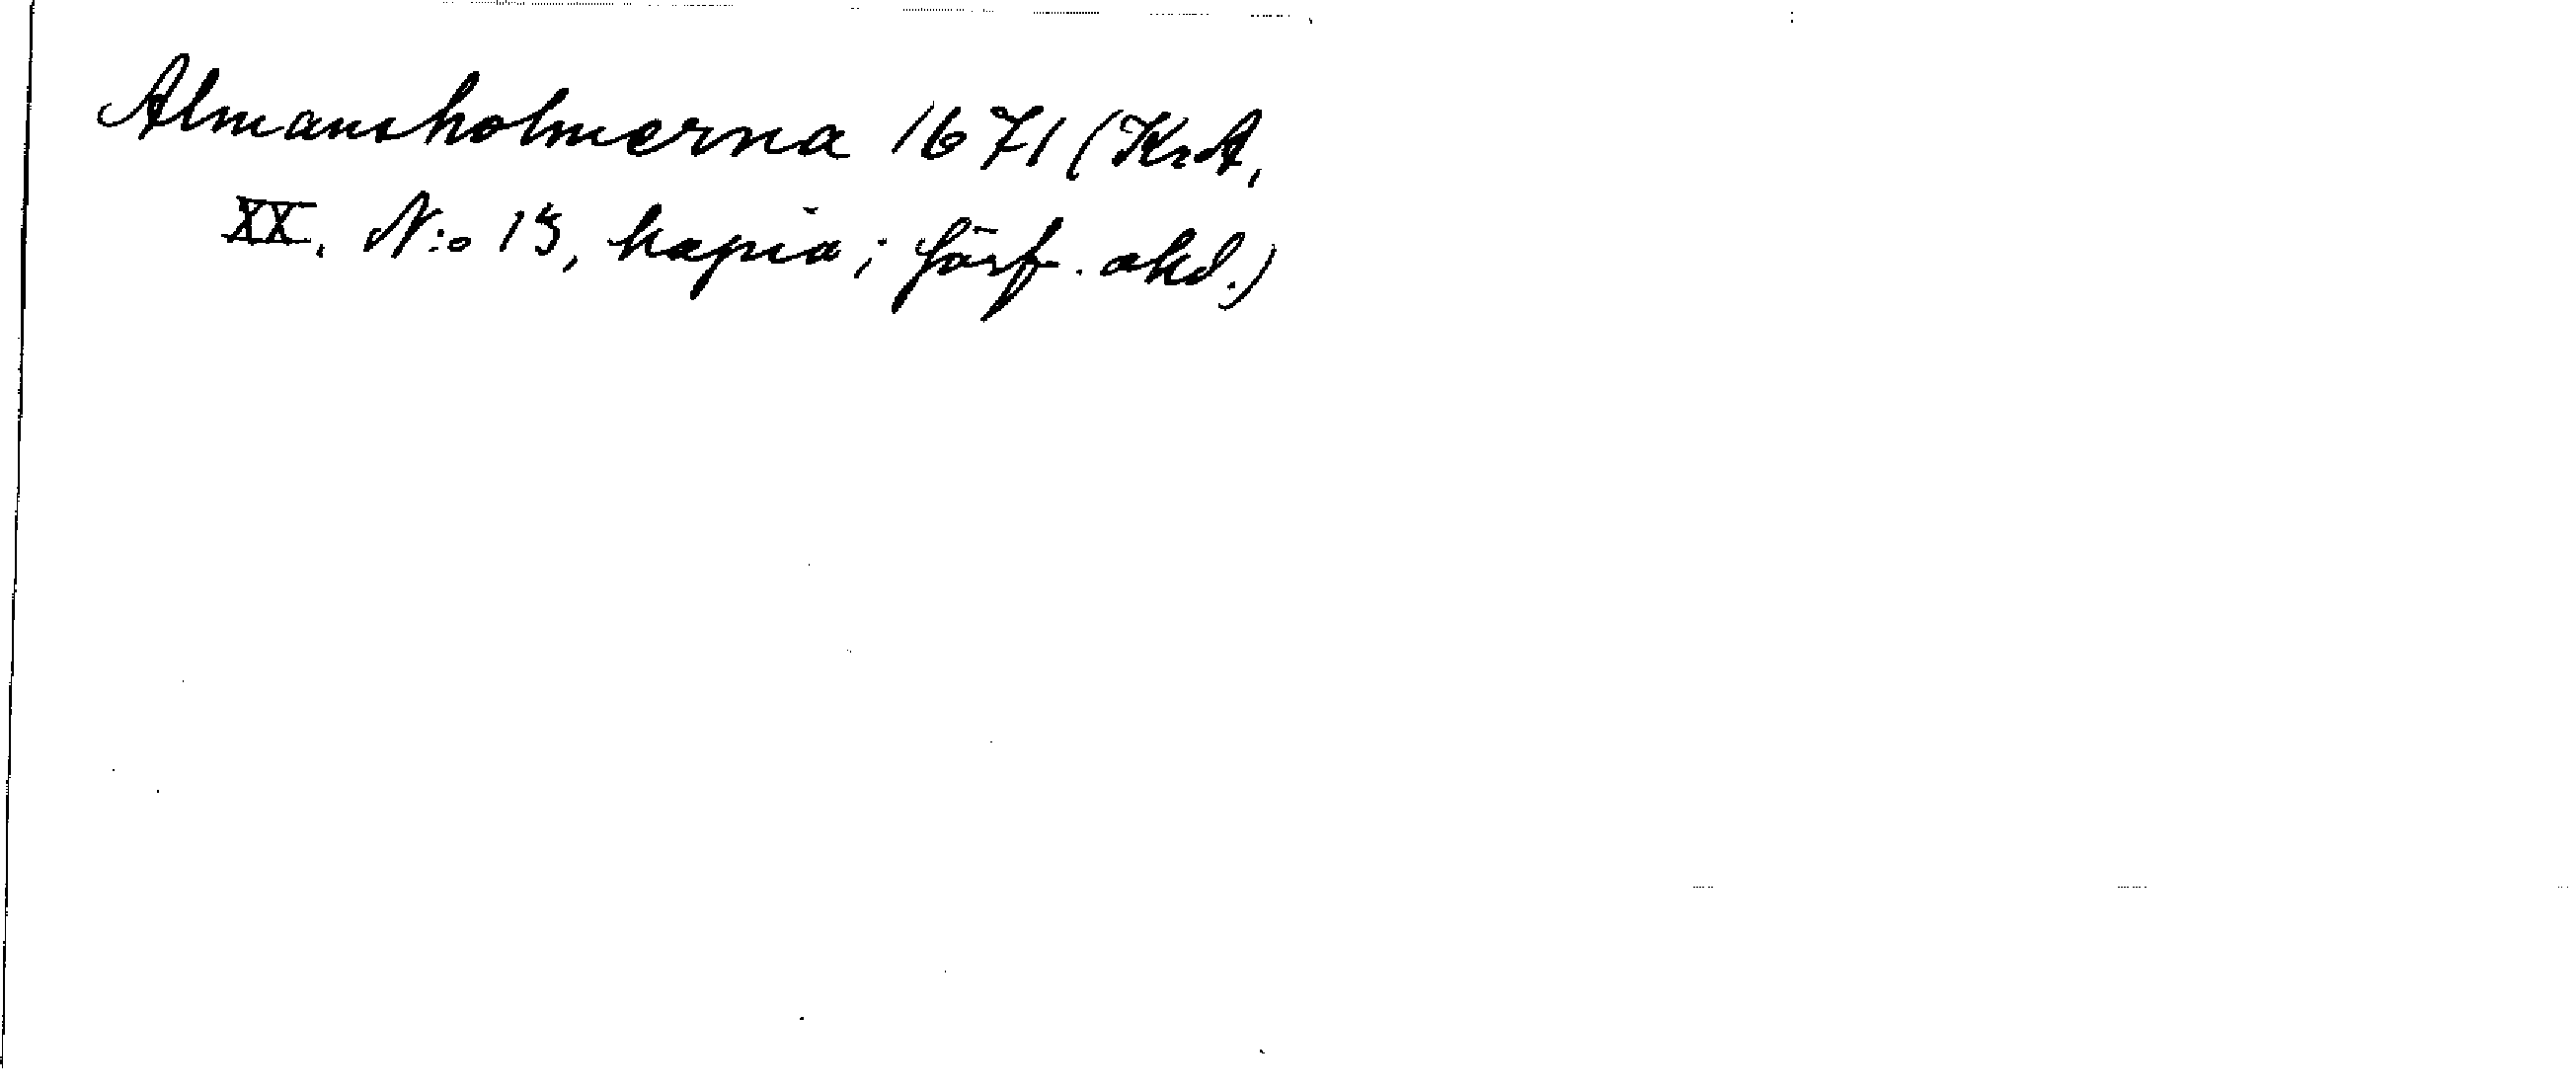 Almansholmerna 1671 (KrA,
XX. N:o 13, kopia; förf. okd.)